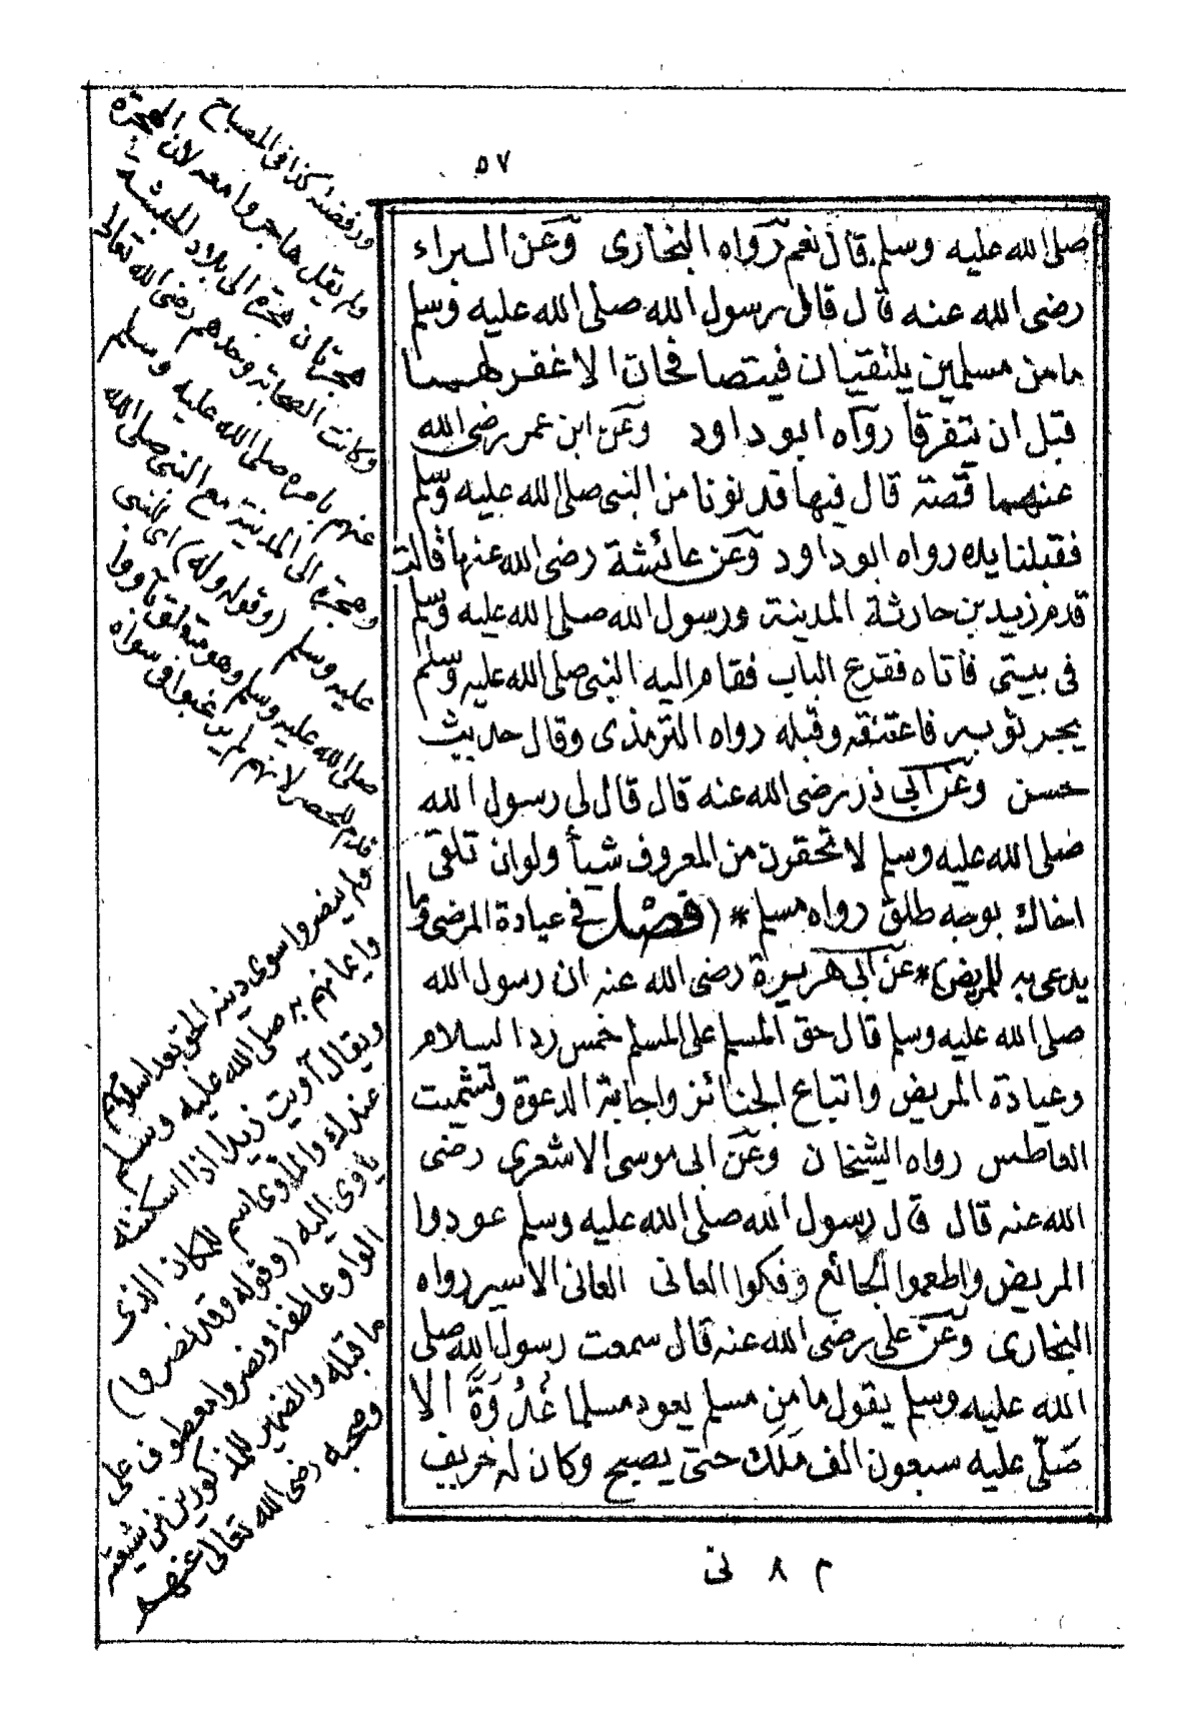 ٥٧
صلى الله عليه وسلم قال نعم رواه البخارى وعن البراء
رضى الله عنه قال قال رسول الله صلى الله عليه وسلم
مامن مسلمين يلتقيان فيتصافحان الا غفر لهما
قبل ان يتفرقا رواه ابو داود وعن ابن عمر رضى الله
عنهما قصة قال فيها فدنونا من النبى صلى الله عليه وسلم
فقبلنا يده رواه ابو داود وعن عائشة رضى الله عنها قالت
قدم زيد بن حارثة المدينة ورسول الله صلى الله عليه وسلم
فى بيتى فاتاه فقرع الباب فقام اليه النبى صلى الله عليه وسلم
يجر ثوبه فاعتنقه وقبله رواه الترمذى وقال حديث
حسن وعن ابى ذر رضى الله عنه قال قال لى رسول الله
صلى الله عليه وسلم لا تحقرن من المعروف شيأ ولو ان تلقى
اخاك بوجه طلق رواه مسلم * (فصل فى عيادة المرضى وما
يدعى به للمريض) * عن ابى هريرة رضى الله عنه ان رسول الله
صلى الله عليه وسلم قال حق المسلم على المسلم خمس رد السلام
وعيادة المريض واتباع الجنائز واجابة الدعوة وتشميت
العاطس رواه الشيخان وعن ابى موسى الاشعرى رضى
الله عنه قال قال رسول الله صلى الله عليه وسلم عودوا
المريض واطعموا الجائع وفكوا العانى العانى الاسير رواه
البخارى وعن على رضى الله عنه قال سمعت رسول الله صلى
الله عليه وسلم يقول مامن مسلم يعود مسلما غُدْوَةً الا
صَلّى عليه سبعون الف مَلَك حتى يصبح وكان له خريف
م ٨ نى
ورفضته كذا فى المصباح
ولم يقل هاجروا معه لان الهجرة
هجرتان هجرة الى بلاد الحبشة
وكانت الصحابة وحدهم رضى الله تعالى
عنهم بامره صلى الله عليه وسلم
وهجرة الى المدينة مع النبى صلى الله
عليه وسلم (وقوله وله) اى للنبى
صلى الله عليه وسلم وهو متعلق بآووا
قدم للحصر لانهم لم يرغبوا فى سواه
ولم ينصروا سوى دينه الحق بعد اسلامهم
وايمانهم به صلى الله عليه وسلم
ويقال آويت زيدا اذا اسكنته
عندك والمأوى اسم للمكان الذى
يأوى اليه (وقوله وقد نصروا)
الواو عاطفة ونصروا معطوف على
ما قبله والضمير للمذكورين من شيعته
وصحبه رضى الله تعالى عنهم